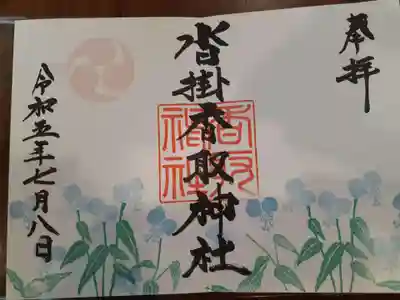 奉拝
沓掛香取神社
香取
神社
令和五年七月八日